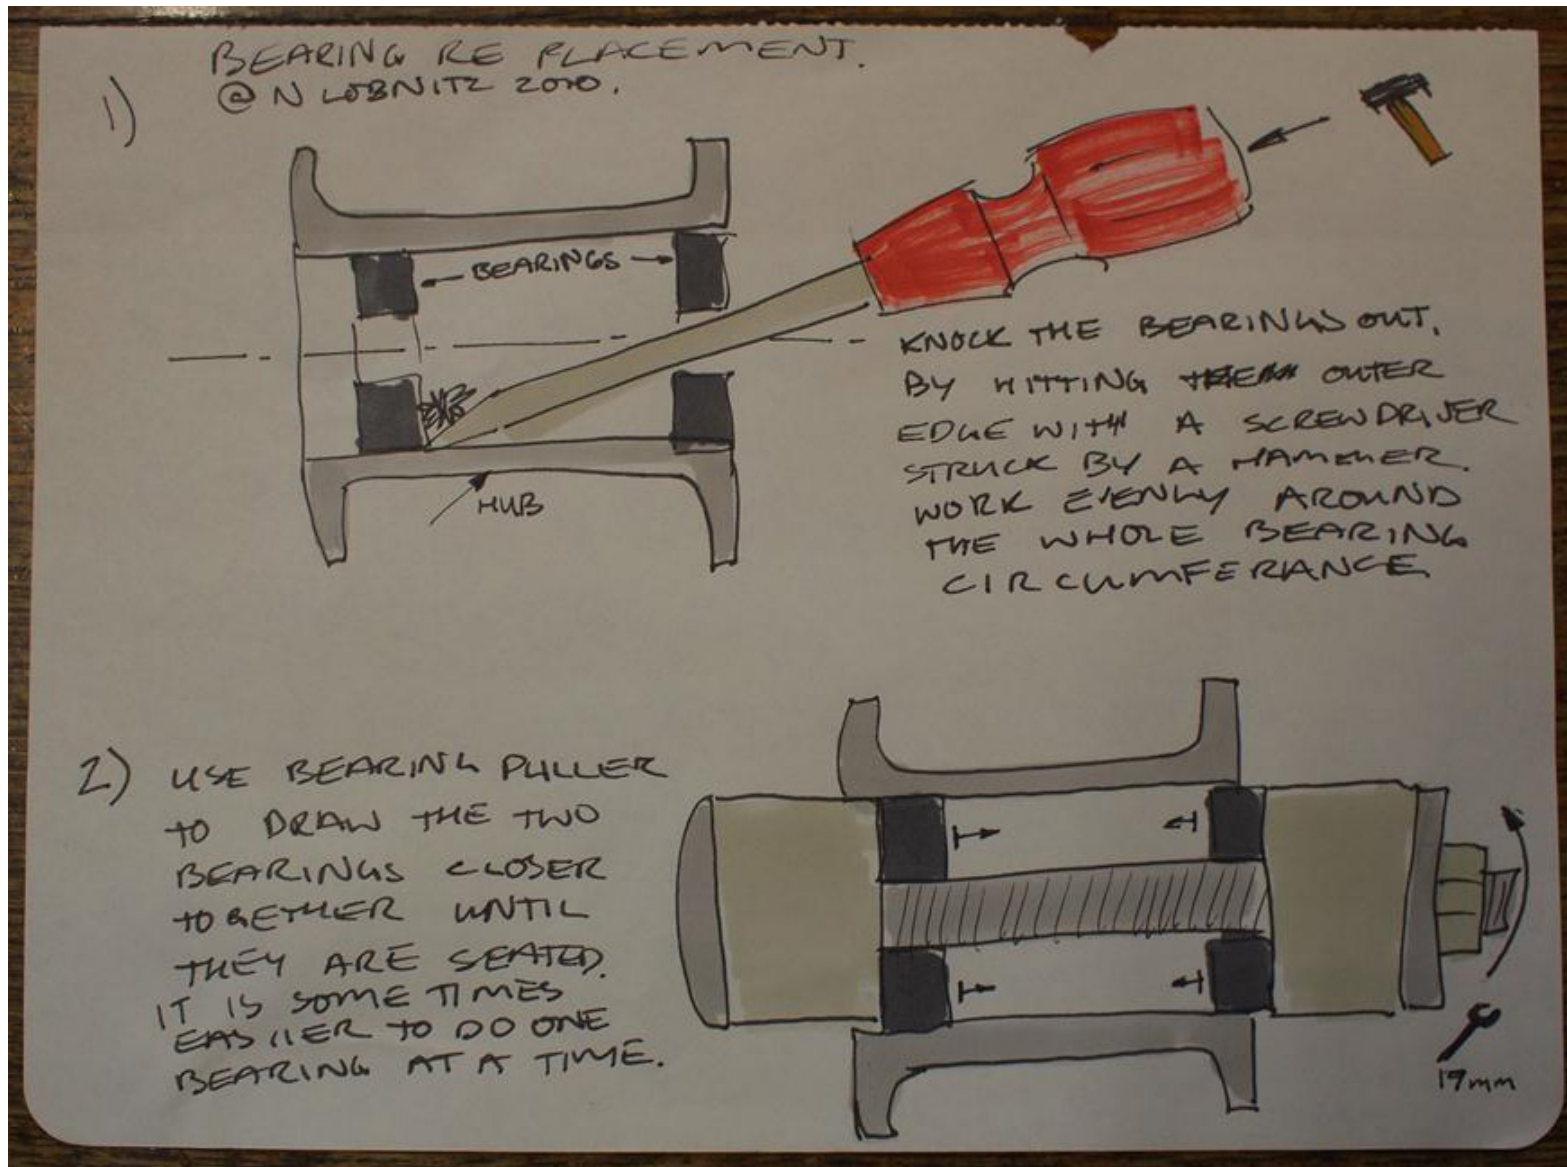 BEARING RE PLACEMENT.
@ N LOBNITZ 2010.
1)
BEARINGS
HUB
KNOCK THE BEARINGS OUT.
BY HITTING OUTER
EDGE WITH A SCREWDRIVER
STRUCK BY A HAMMER.
WORK EVENLY AROUND
THE WHOLE BEARING
CIRCUMFERANCE
2) USE BEARING PULLER
TO DRAW THE TWO
BEARINGS CLOSER
TOGETHER UNTIL
THEY ARE SEATED.
IT IS SOME TIMES
EASIIER TO DO ONE
BEARING AT A TIME.
19mm